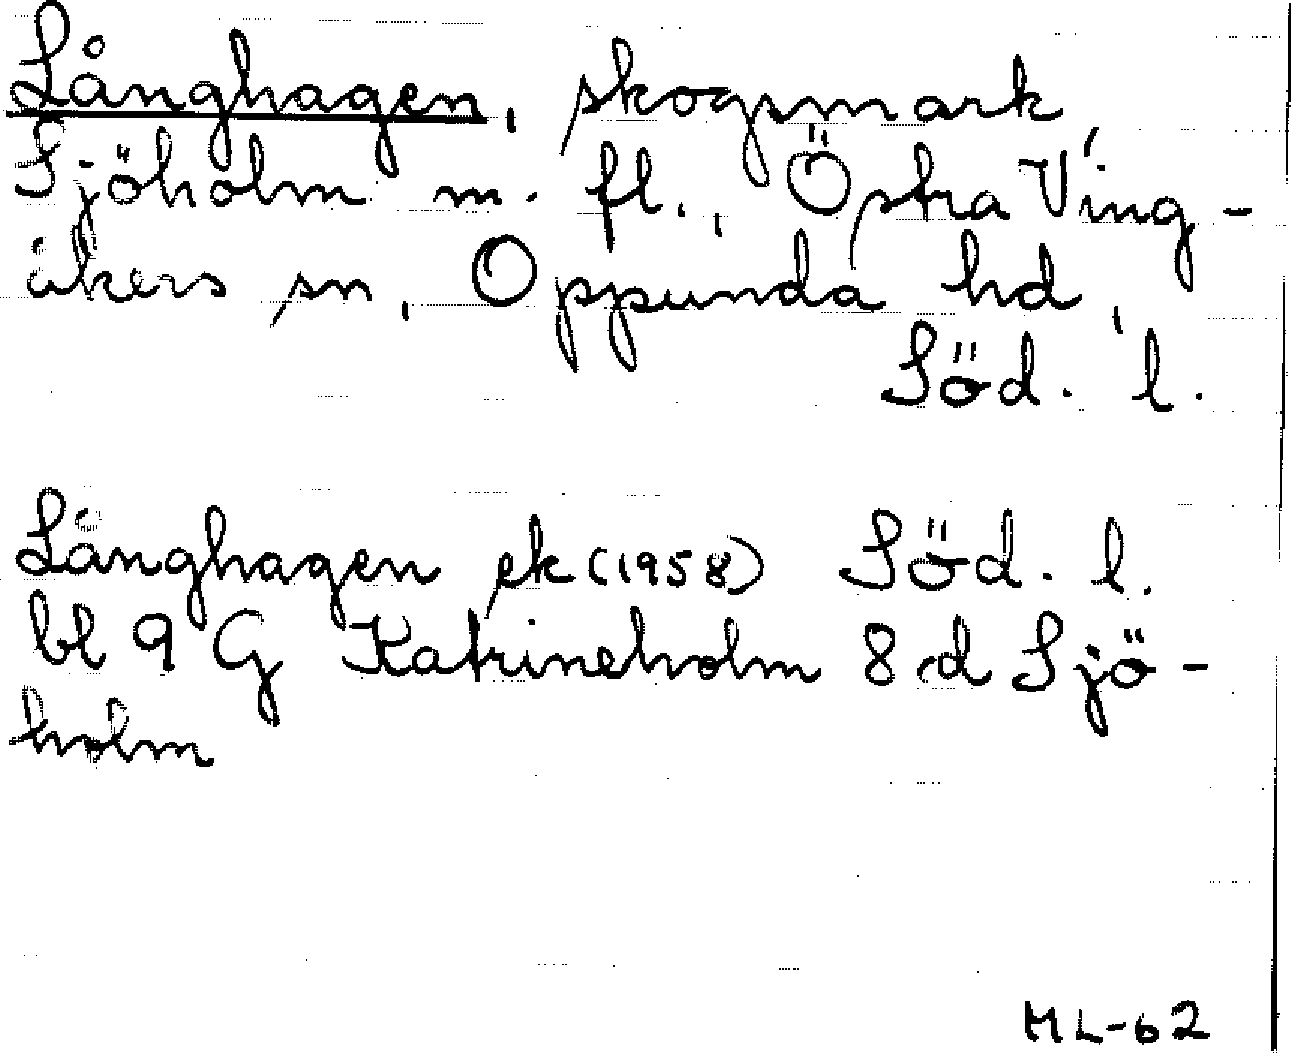 Långhagen, skogsmark,
Sjöholm m. fl., Östra Ving-
åkers sn, Oppunda hd,
Söd. l.
Långhagen ek (1958) Söd. l.
bl 9 G Katrineholm 8 d Sjö-
holm
ML-62